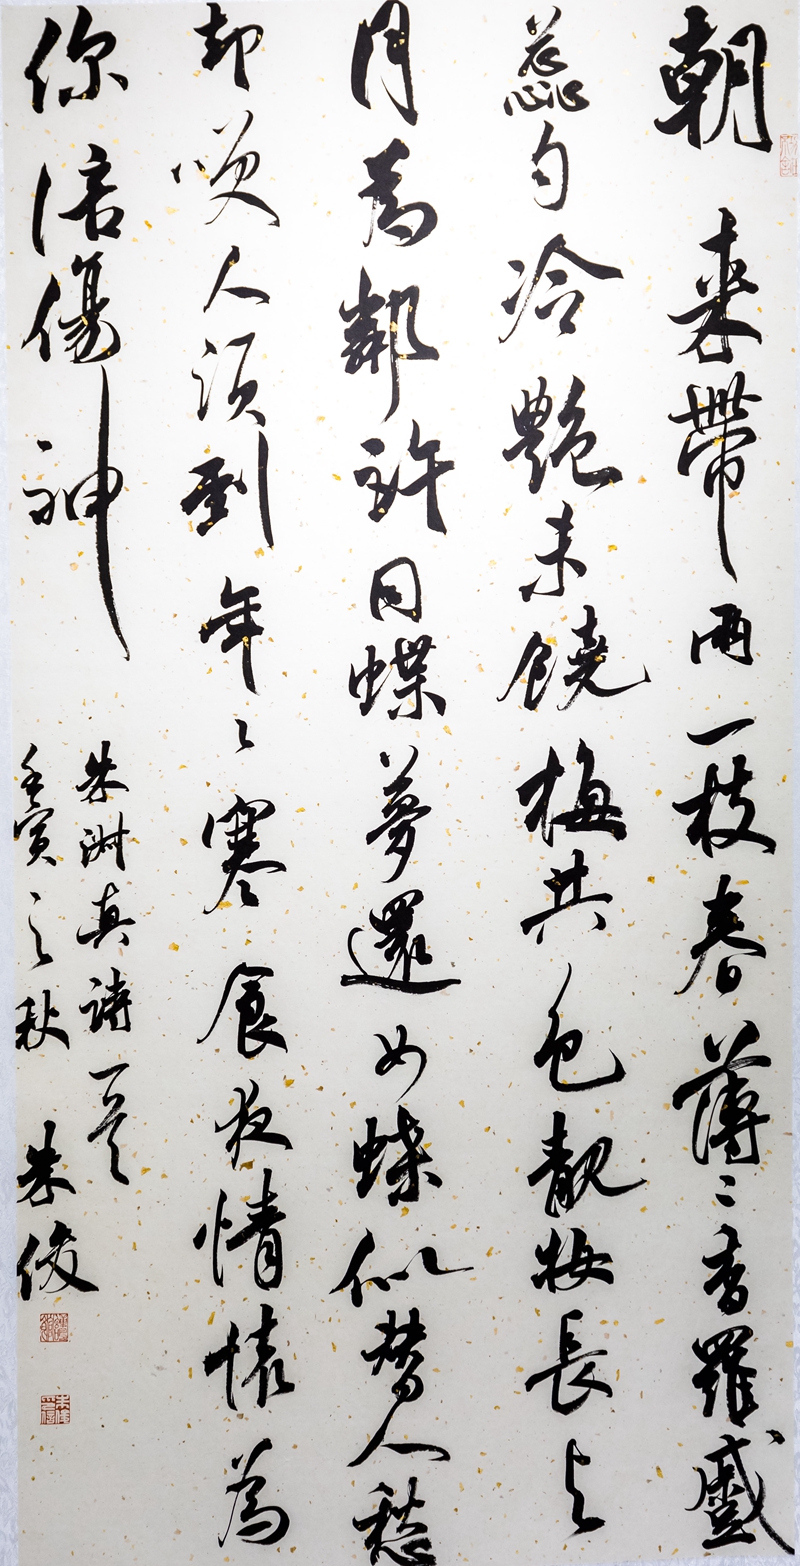 朝來帶雨一枝春薄〻香羅蹙
蕊勻冷艷未饒梅共色靚妝長与
月為鄰許同蝶夢還如蝶似替人愁
却咲人須到年〻寒食夜情懷為
你倍傷神
朱淑真詩一首
壬寅之秋 朱俊